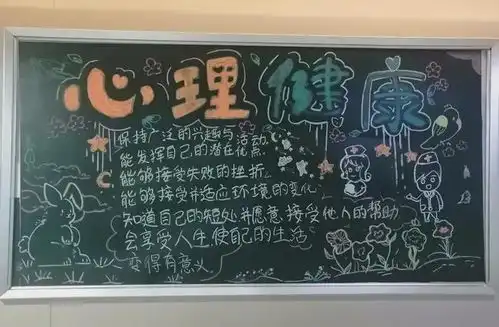 心理健康
保持广泛的兴趣与活动
能发挥自己的潜在优点
能够接受失败的挫折
能够接受并适应环境的变化
知道自己的短处并愿意接受他人的帮助
会享受人生使自己的生活
变得有意义